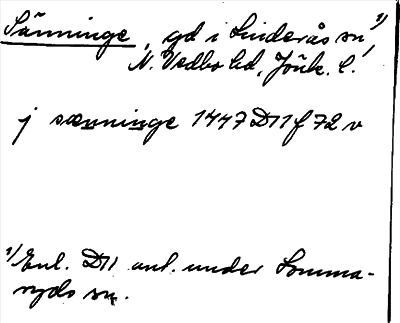 Sänninge, gd i Linderås sn,¹⁾
N. Vedbo hd, Jönk. l.
j sænninge 1447 D11 f 72 v
¹⁾ Enl. D11 anl. under Somma-
ryds sn.